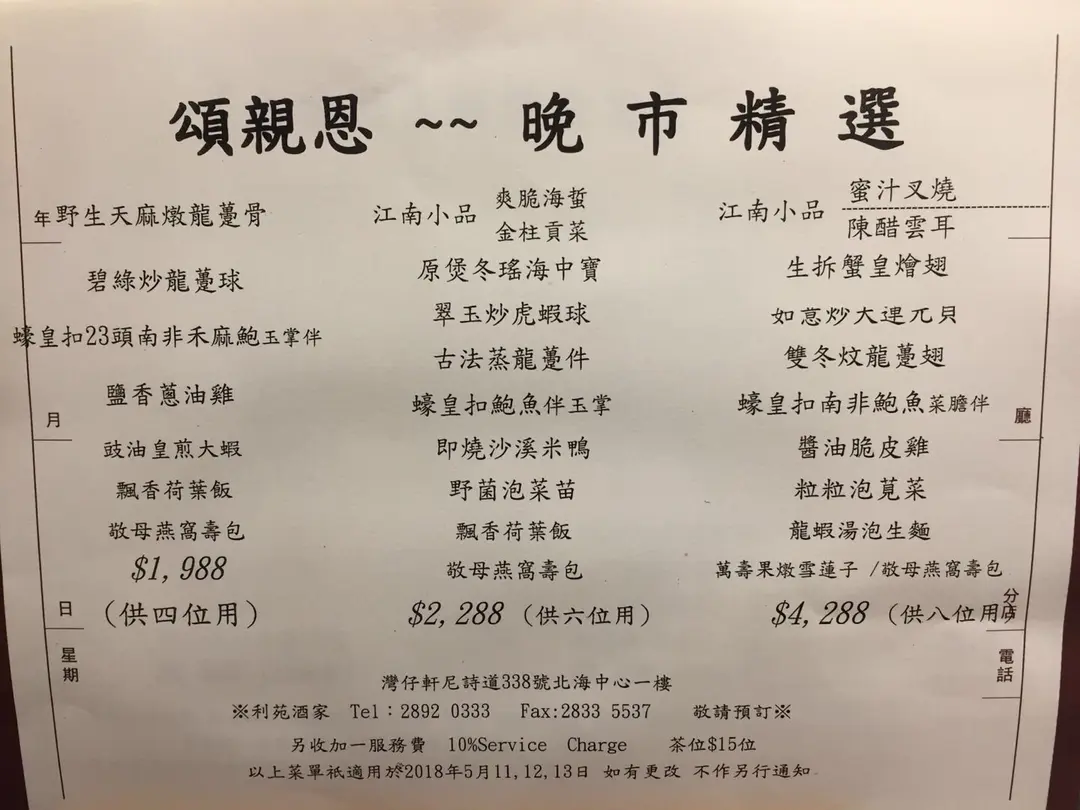 頌親恩 ~~ 晚市精選
野生天麻燉龍躉骨
碧綠炒龍躉球
蠔皇扣23頭南非禾麻鮑玉掌伴
鹽香蔥油雞
豉油皇煎大蝦
飄香荷葉飯
敬母燕窩壽包
$1,988
(供四位用)
江南小品 爽脆海蜇
金柱貢菜
原煲冬瑤海中寶
翠玉炒虎蝦球
古法蒸龍躉件
蠔皇扣鮑魚伴玉掌
即燒沙溪米鴨
野菌泡菜苗
飄香荷葉飯
敬母燕窩壽包
$2,288 (供六位用)
江南小品 蜜汁叉燒
陳醋雲耳
生拆蟹皇燴翅
如意炒大連元貝
雙冬炆龍躉翅
蠔皇扣南非鮑魚菜膽伴
醬油脆皮雞
粒粒泡莧菜
龍蝦湯泡生麵
萬壽果燉雪蓮子 /敬母燕窩壽包
$4,288 (供八位用)
年
月
日
星期
廳
分店
電話
灣仔軒尼詩道338號北海中心一樓
※利苑酒家 Tel：2892 0333 Fax:2833 5537 敬請預訂※
另收加一服務費 10%Service Charge 茶位$15位
以上菜單衹適用於2018年5月11,12,13日 如有更改 不作另行通知